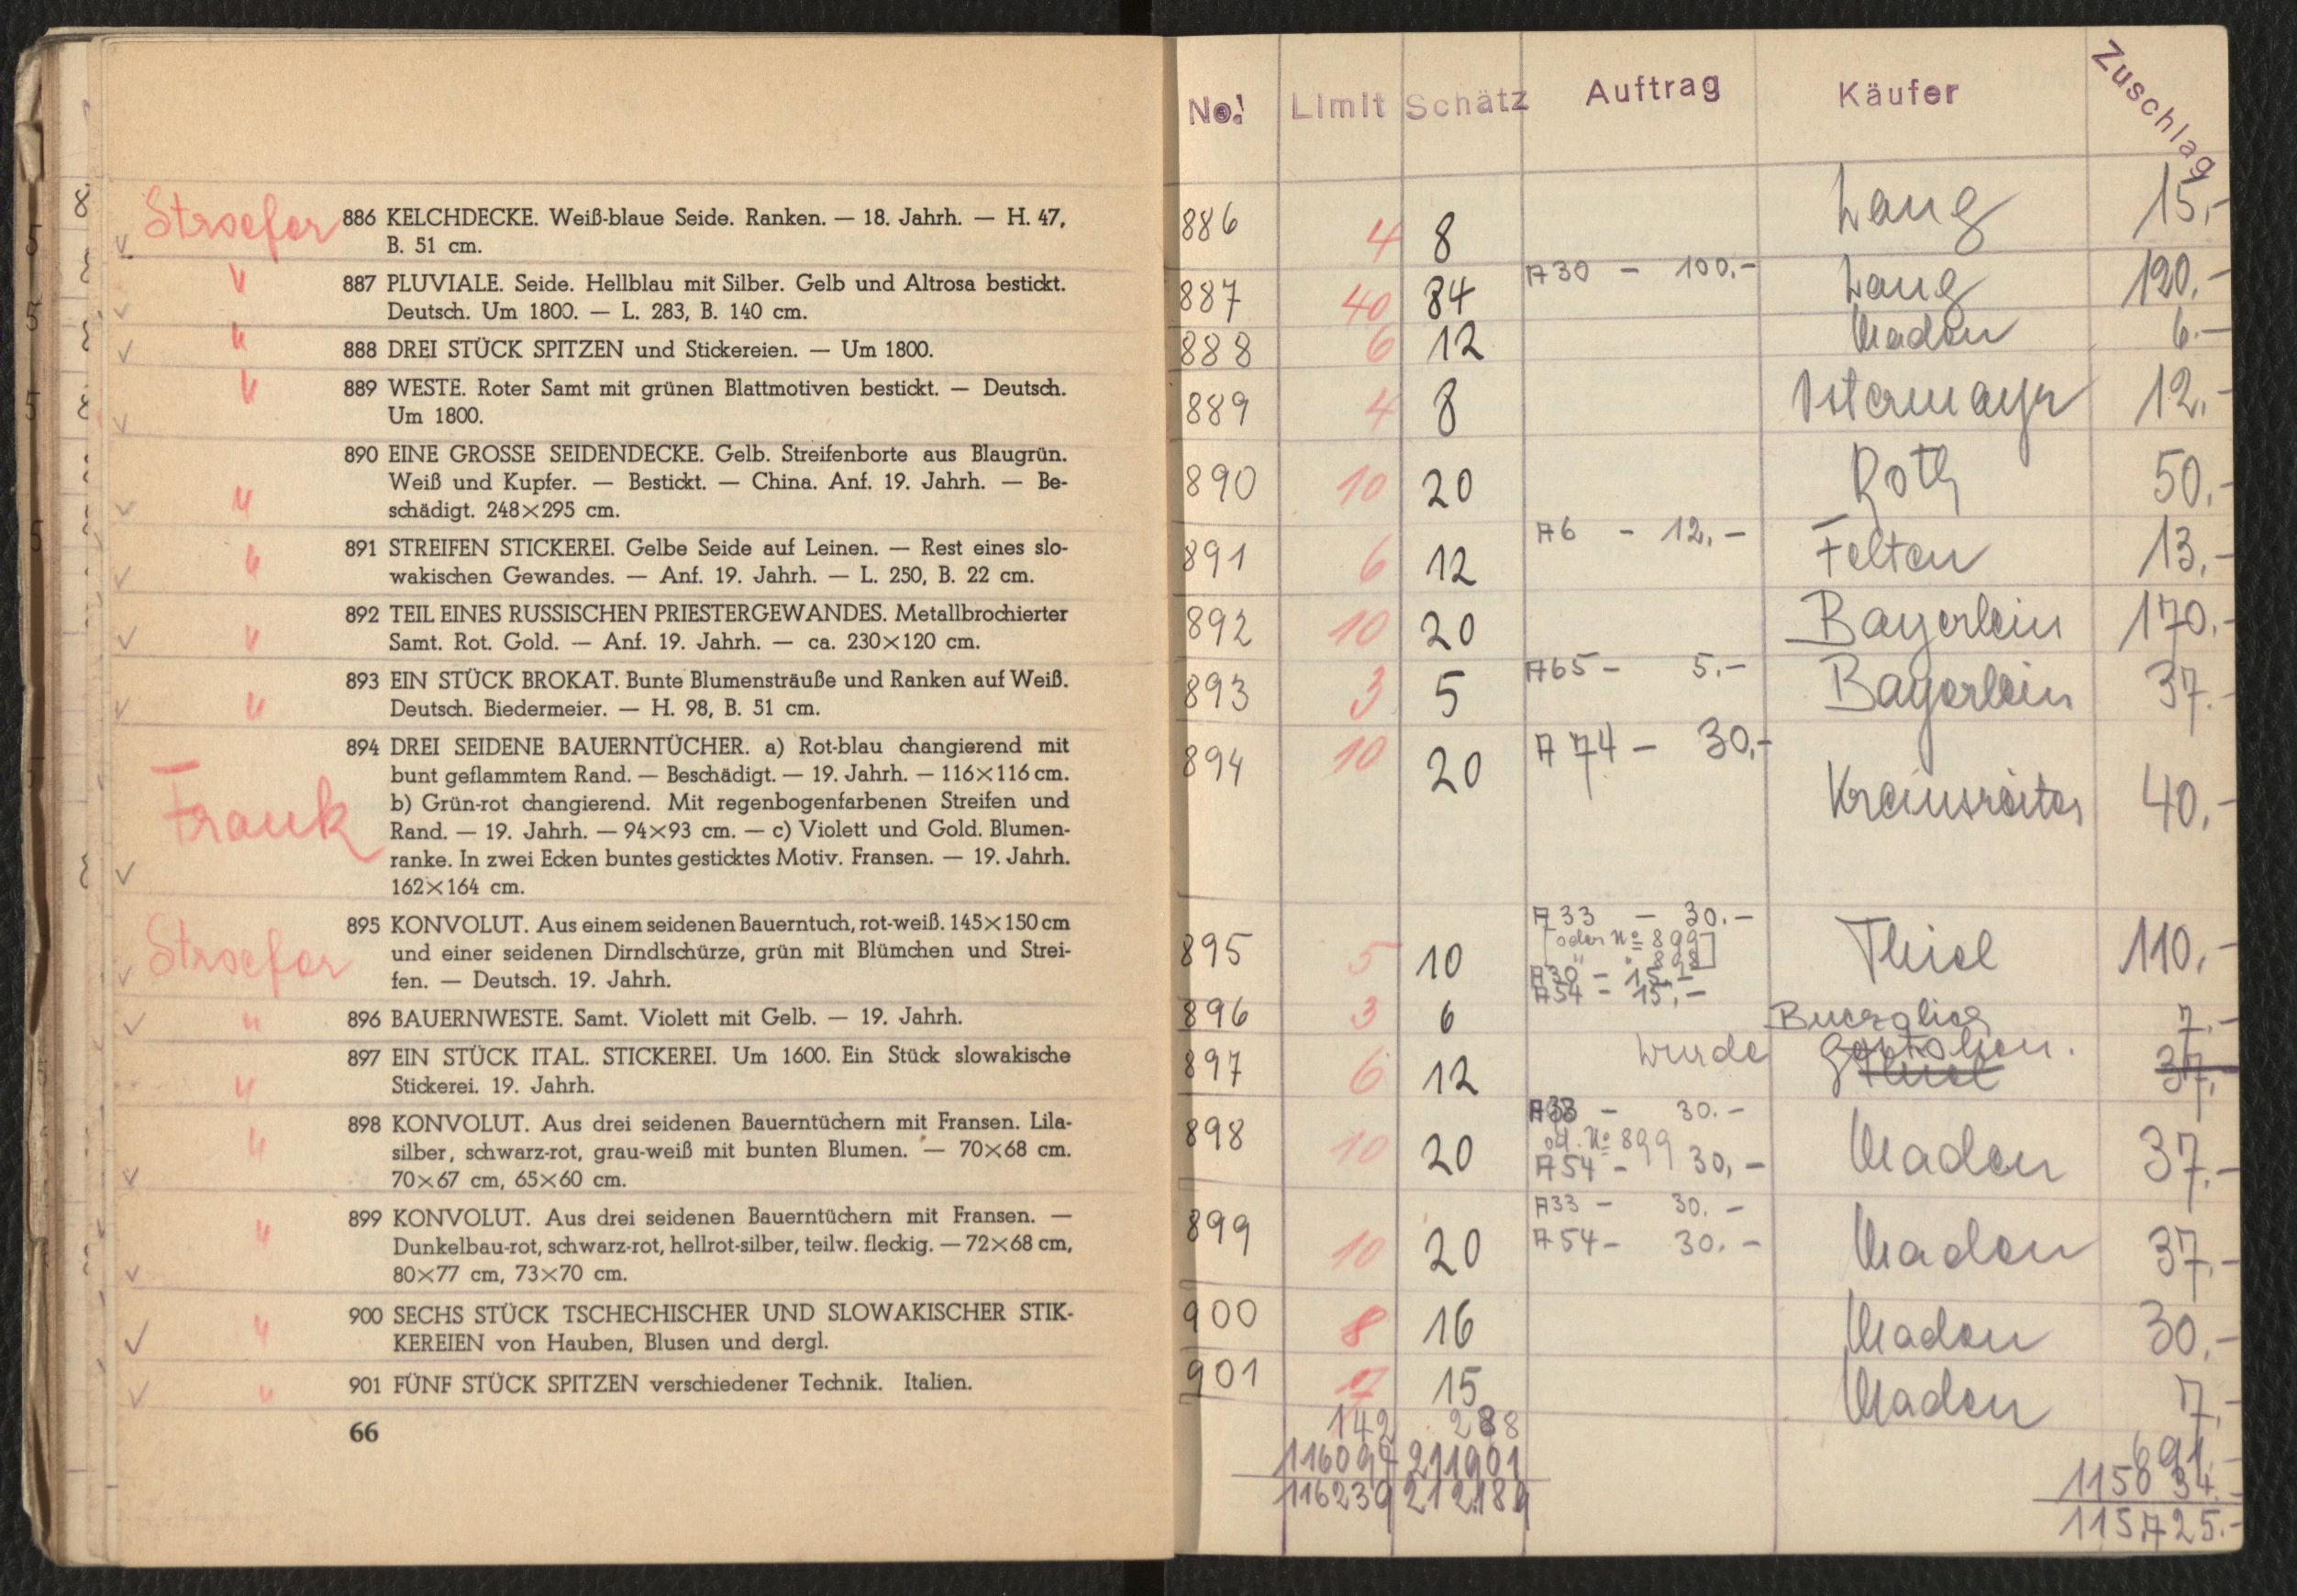 Stroefer 886 KELCHDECKE. Weiß-blaue Seide. Ranken. — 18. Jahrh. — H. 47,
B. 51 cm.
" 887 PLUVIALE. Seide. Hellblau mit Silber. Gelb und Altrosa bestickt.
Deutsch. Um 1800. — L. 283, B. 140 cm.
" 888 DREI STÜCK SPITZEN und Stickereien. — Um 1800.
" 889 WESTE. Roter Samt mit grünen Blattmotiven bestickt. — Deutsch.
Um 1800.
890 EINE GROSSE SEIDENDECKE. Gelb. Streifenborte aus Blaugrün.
Weiß und Kupfer. — Bestickt. — China. Anf. 19. Jahrh. — Be-
" schädigt. 248×295 cm.
" 891 STREIFEN STICKEREI. Gelbe Seide auf Leinen. — Rest eines slo-
wakischen Gewandes. — Anf. 19. Jahrh. — L. 250, B. 22 cm.
892 TEIL EINES RUSSISCHEN PRIESTERGEWANDES. Metallbrochierter
" Samt. Rot. Gold. — Anf. 19. Jahrh. — ca. 230×120 cm.
893 EIN STÜCK BROKAT. Bunte Blumensträuße und Ranken auf Weiß.
" Deutsch. Biedermeier. — H. 98, B. 51 cm.
894 DREI SEIDENE BAUERNTÜCHER. a) Rot-blau changierend mit
bunt geflammtem Rand. — Beschädigt. — 19. Jahrh. — 116×116 cm.
b) Grün-rot changierend. Mit regenbogenfarbenen Streifen und
Frank Rand. — 19. Jahrh. — 94×93 cm. — c) Violett und Gold. Blumen-
ranke. In zwei Ecken buntes gesticktes Motiv. Fransen. — 19. Jahrh.
162×164 cm.
895 KONVOLUT. Aus einem seidenen Bauerntuch, rot-weiß. 145×150 cm
Stroefer und einer seidenen Dirndlschürze, grün mit Blümchen und Strei-
fen. — Deutsch. 19. Jahrh.
" 896 BAUERNWESTE. Samt. Violett mit Gelb. — 19. Jahrh.
897 EIN STÜCK ITAL. STICKEREI. Um 1600. Ein Stück slowakische
" Stickerei. 19. Jahrh.
898 KONVOLUT. Aus drei seidenen Bauerntüchern mit Fransen. Lila-
" silber, schwarz-rot, grau-weiß mit bunten Blumen. — 70×68 cm.
70×67 cm, 65×60 cm.
" 899 KONVOLUT. Aus drei seidenen Bauerntüchern mit Fransen. —
Dunkelbau-rot, schwarz-rot, hellrot-silber, teilw. fleckig. — 72×68 cm,
80×77 cm, 73×70 cm.
" 900 SECHS STÜCK TSCHECHISCHER UND SLOWAKISCHER STIK-
KEREIEN von Hauben, Blusen und dergl.
" 901 FÜNF STÜCK SPITZEN verschiedener Technik. Italien.
66
No. Limit Schätz Auftrag Käufer Zuschlag
886 4 8 Lang 15,-
887 40 84 A30 - 100.- Lang 120.-
888 6 12 Maden 6.-
889 4 8 Ostermayr 12.-
890 10 20 Roth 50.-
891 6 12 A6 - 12.- Felten 13.-
892 10 20 Bayerlein 170.-
893 3 5 A65 - 5.- Bayerlein 37.-
894 10 20 A74 - 30,- Kreinsreiter 40,-
895 5 10 A33 - 30.- Thiel 110,-
[oder No 899
" " 898]
A30 - 15.-
A54 - 15,-
896 3 6 7.-
897 6 12 wurde 37,-
898 10 20 A33 - 30.- Maden 37.-
od. No 899
A54 - 30,-
899 10 20 A33 - 30.- Maden 37,-
A54 - 30.-
900 8 16 Maden 30,-
901 7 15 Maden 7,-
142 288 691.-
116097 211901 115034.-
116239 212189 115725.-